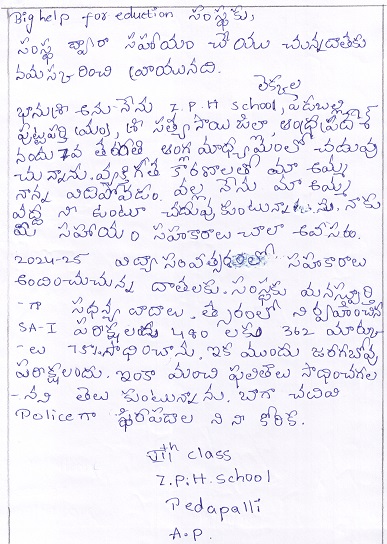 Big help for eduction సంస్థకు,
సంస్థ ద్వారా సహాయం చేయు చున్న దాతకు
నమస్కరించి వ్రాయునది.
లెక్కల
భానుశ్రీ అను నేను Z.P.H School, పెదబల్లి
పుట్టపర్తి (మం), శ్రీ సత్య సాయి జిల్లా, ఆంధ్రప్రదేశ్
నందు 7వ తరగతి ఆంగ్ల మాధ్యమంలో చదువు
చున్నాను. వ్యక్తిగత కారణాలతో మా అమ్మ
నాన్న విడిపోవడం. వల్ల నేను మా అమ్మ
వద్ద ఉంటూ చదువు కుంటున్నాను. నాకు
మీ సహాయం సహకారాలు చాలా అవసరం.
2024-25 విద్యా సంవత్సరంలో సహకారాలు
అందించుచున్న దాతలకు. సంస్థకు మనస్ఫూర్తి
-గా ధన్య వాదాలు. నిర్వహించిన
SA-I పరీక్షలందు 480 లకు 362 మార్కు
-లు 75% సాధించాను. ఇక ముందు జరగబోవు
పరీక్షలందు. ఇంకా మంచి ఫలితాలు సాధించగల
-నని తెలుపుకుంటున్నాను. బాగా చదివి
Police గా స్థిరపడాలని నా కోరిక.
VIIth class
Z.P.H. School
Pedapalli
A.P.